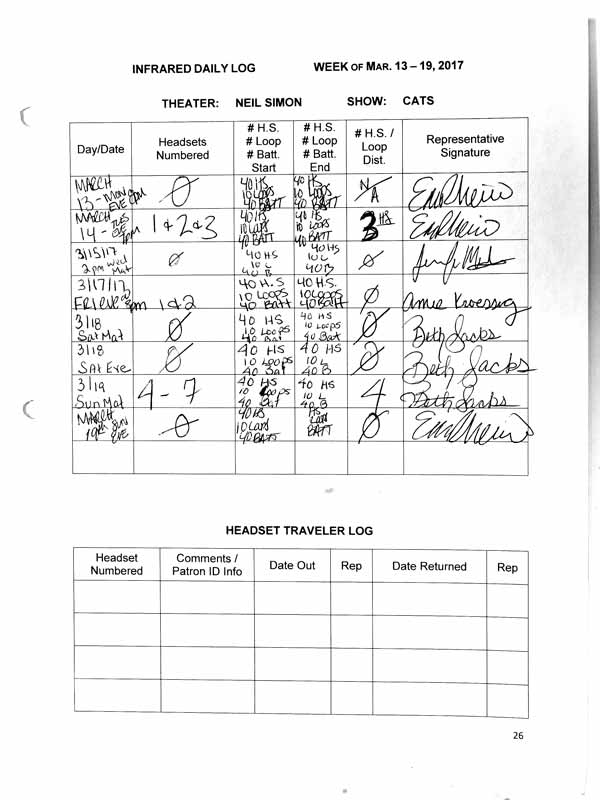 INFRARED DAILY LOG WEEK OF MAR. 13 – 19, 2017
THEATER: NEIL SIMON SHOW: CATS
Day/Date Headsets Numbered # H.S. # Loop # Batt. Start # H.S. # Loop # Batt. End # H.S. / Loop Dist. Representative Signature
MARCH 13 - MON EVE 8pm Ø 40 HS 10 LOOPS 40 BATT 40 HS 10 LOOPS 40 BATT N/A
MARCH 14 - TUES EVE 1 & 2 & 3 40 HS 10 LOOPS 40 BATT 40 HS 10 LOOPS 40 BATT 3 HS
3/15/17 2pm Wed Mat Ø 40 HS 10 L 40 B 40 HS 10 L 40 B Ø
3/17/17 FRI EVE 8pm 1 & 2 40 H.S 10 LOOPS 40 Batt 40 H.S. 10 LOOPS 40 Batt Ø Amie Kroessig
3/18 Sat Mat Ø 40 HS 10 Loops 40 Bat 40 HS 10 Loops 40 Bat Ø Beth Jacks
3/18 SAt Eve Ø 40 HS 10 Loops 40 Bat 40 HS 10 L 40 B Ø Beth Jacks
3/19 Sun Mat 4 - 7 40 HS 10 Loops 40 Bat 40 HS 10 L 40 B 4 Beth Jacks
MARCH 19th SUN EVE Ø 40 HS 10 LOOPS 40 BATT HS LOOPS BATT Ø
HEADSET TRAVELER LOG
Headset Numbered Comments / Patron ID Info Date Out Rep Date Returned Rep
26